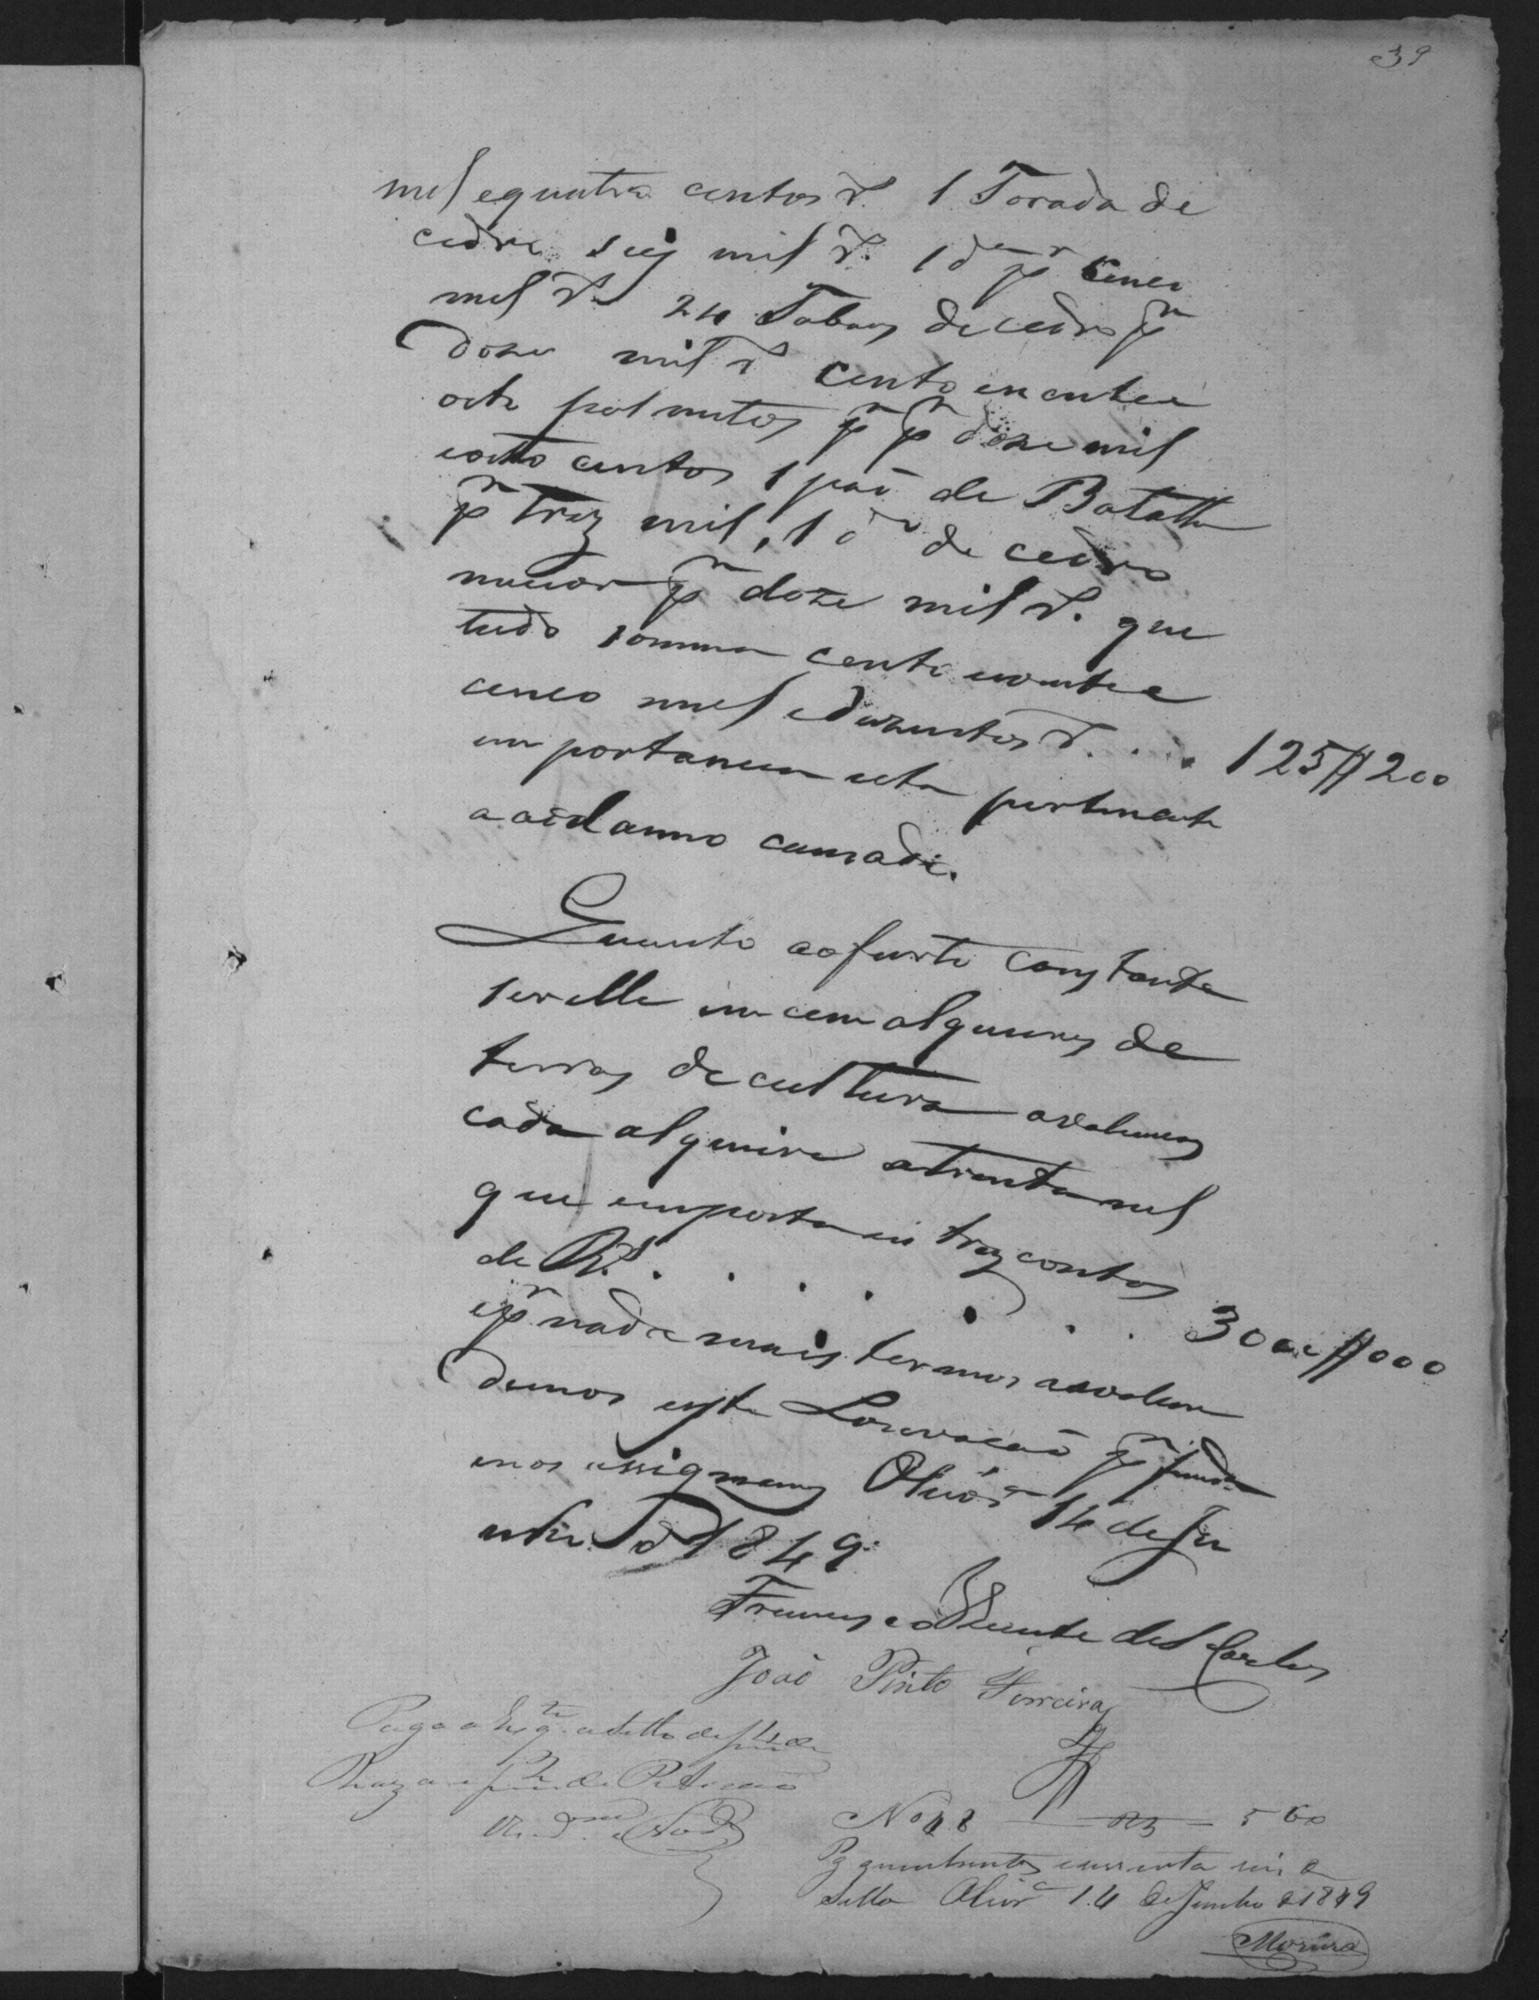 39
mil equatro centos r.s 1 Torada de
cedro seis mil r.s 1 d.a p.r cinco
mil r.s 24 Taboas de cedro p.r
doze mil r.s cento
oito palmitos p.r p.r doze mil
eoito centos 1 pao de Batalha
p.r trez mil, 1 d.o de cedro
maior p.r doze mil r.s que
tudo somma cento evinte e
cinco mil eduzentos r.s . . . 125#200
importancia esta pertencente
aaodanno cauzado.
Quanto aofurto constante
ser elle em cem alqueires de
terras de cultura avaliamos
cada alqueire atrinta mil
que emporta em trez contos
de R.s . . . . . . . 3000#000
ep.r nada mais termos aavaliar
demos esta Louvacaõ p.r finda
enos assignamos Olivr.a 14 de Ju
nho de 1849
Francisco Vicente de Carlos
Joaõ Pinto Ferreira
Paga o sello de
de Peticaõ
N.o 48 R.s 560
Pg quinhentos esessenta reis de
Sello Olivr.a 14 de Junho de 1849
Moreira